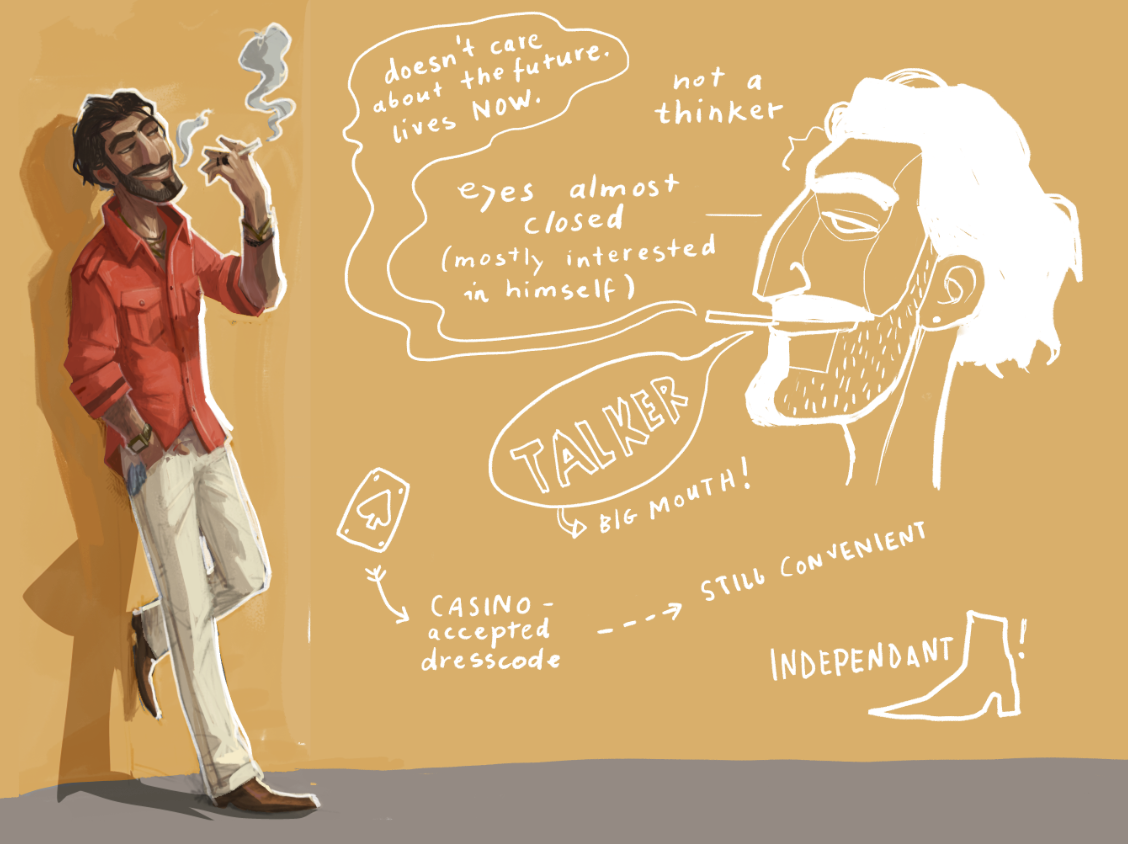 doesn't care
about the future.
lives NOW.
not a
thinker
eyes almost
closed
(mostly interested
in himself)
TALKER
BIG MOUTH!
CASINO-
accepted
dresscode
STILL CONVENIENT
INDEPENDANT!